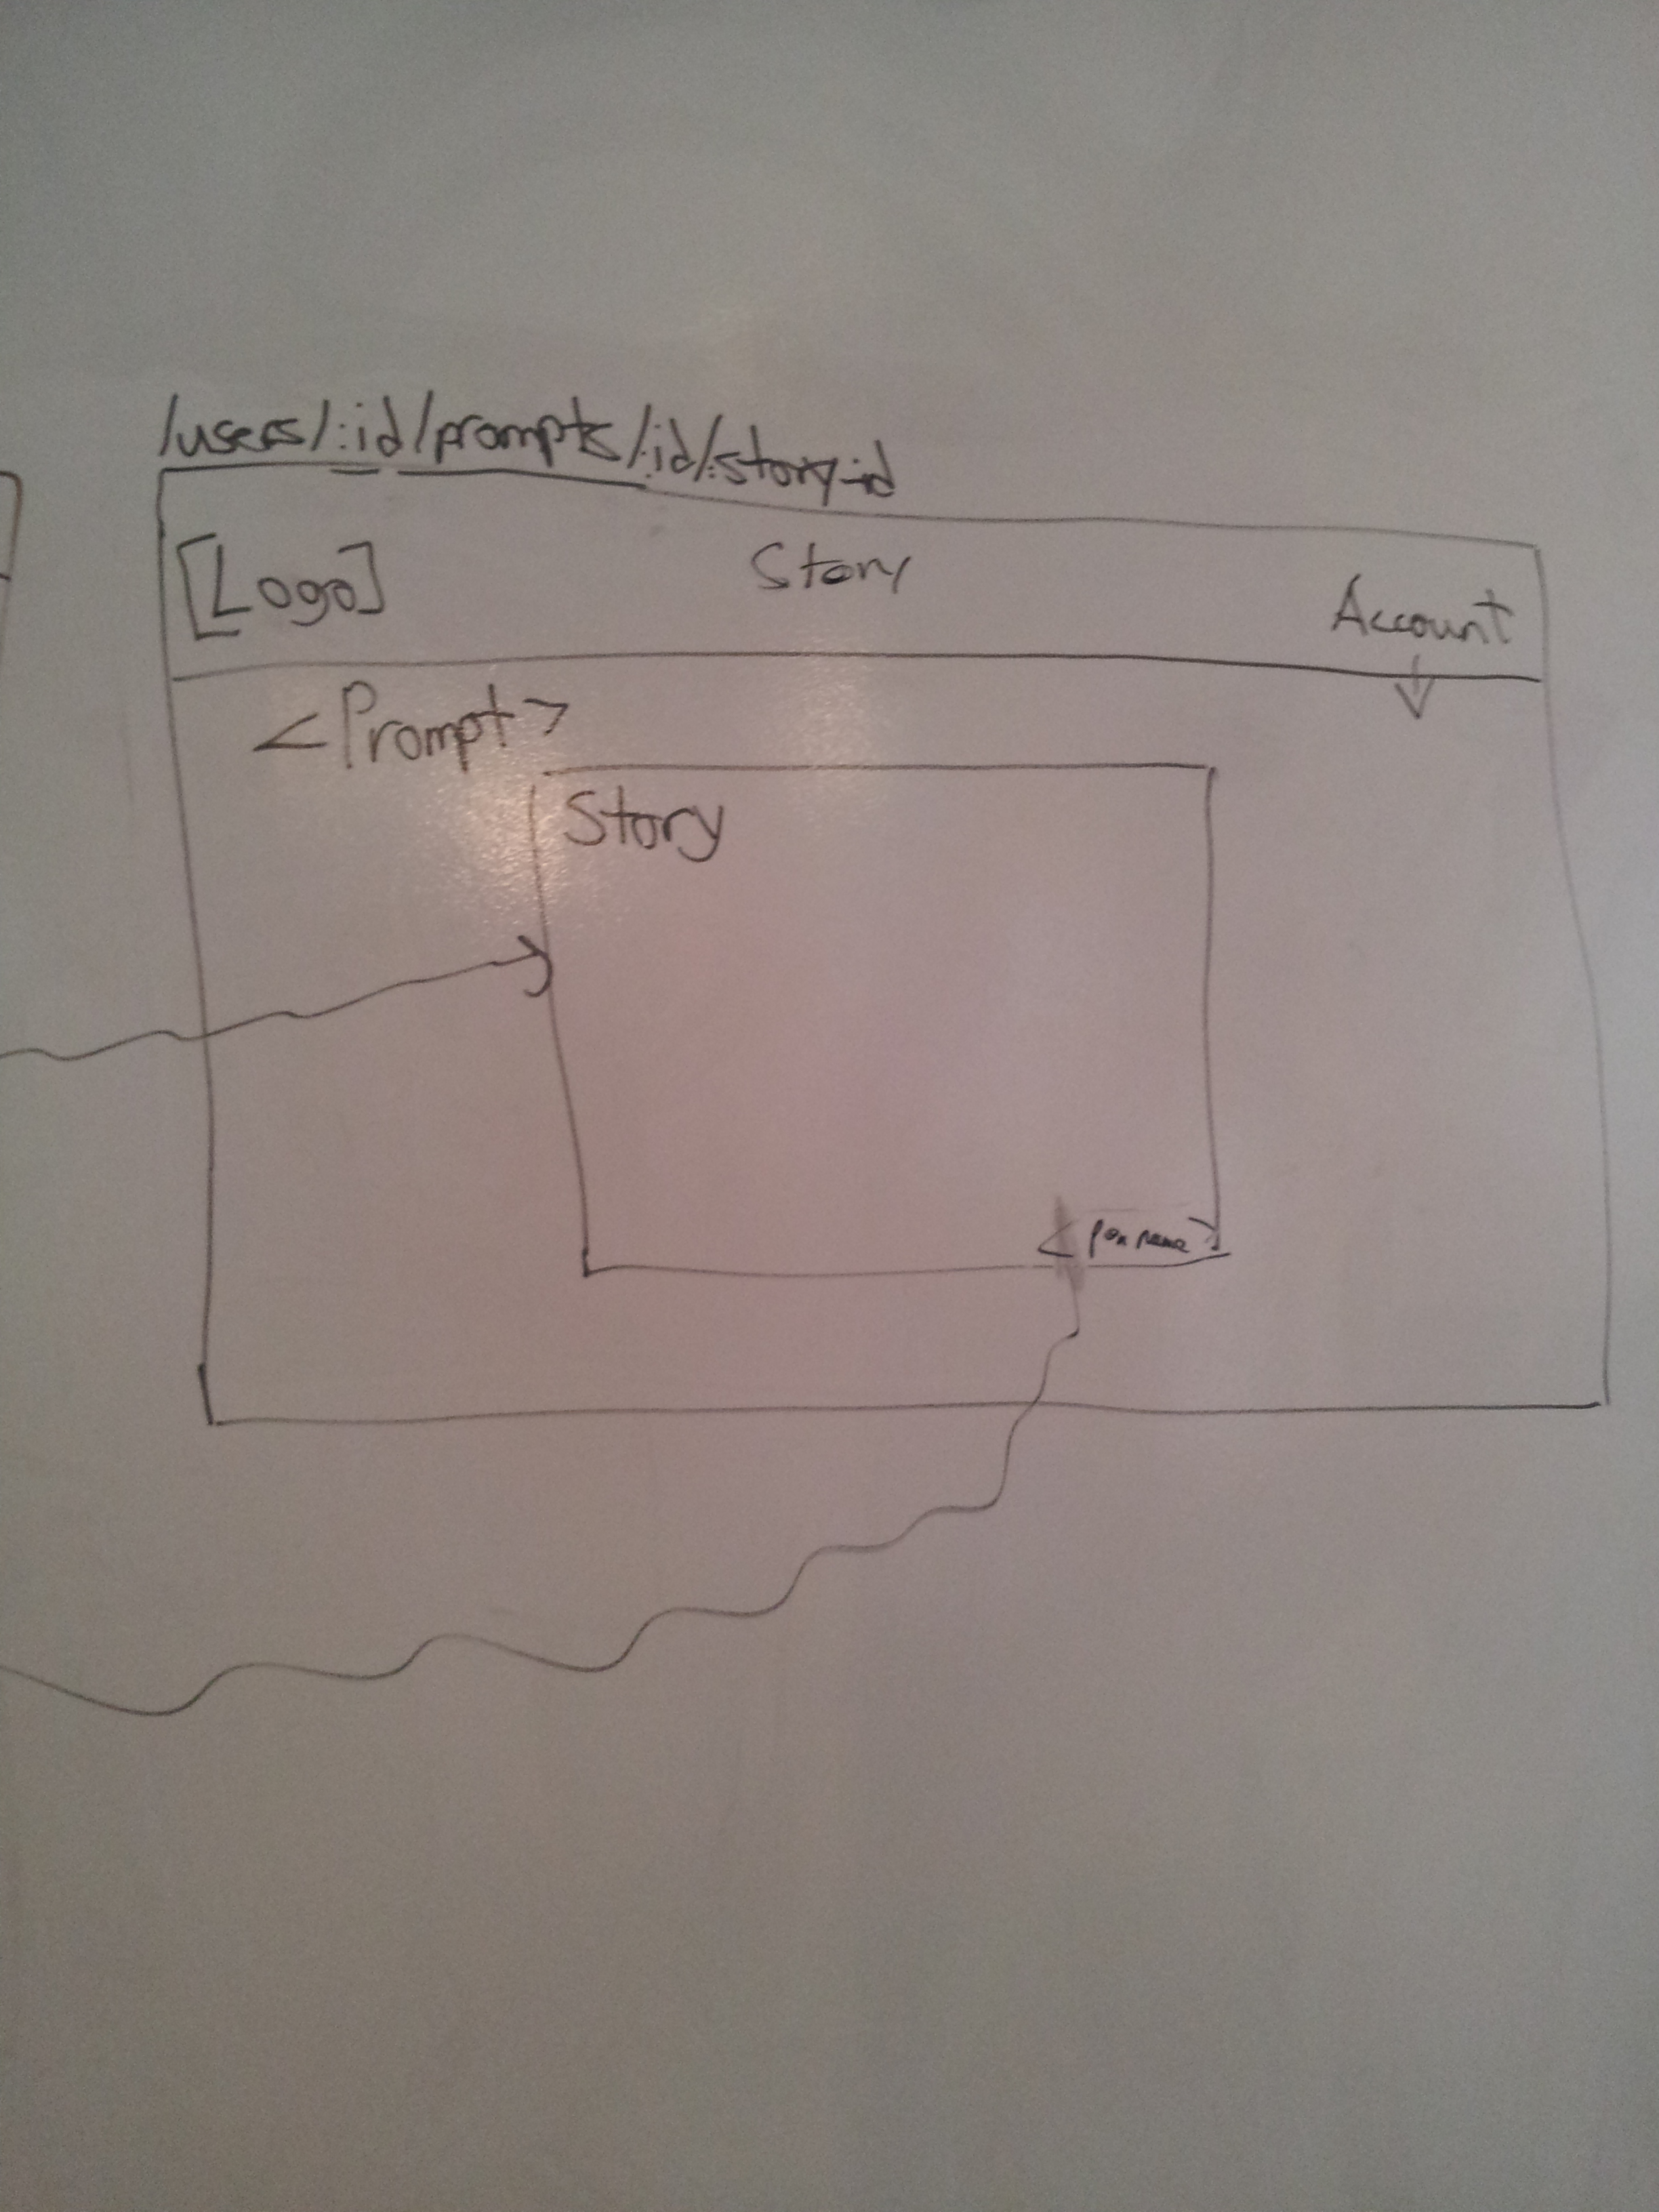 /users/:id/prompts/:id/:story-id
[Logo] Story Account
<Prompt>
Story
<pen name>